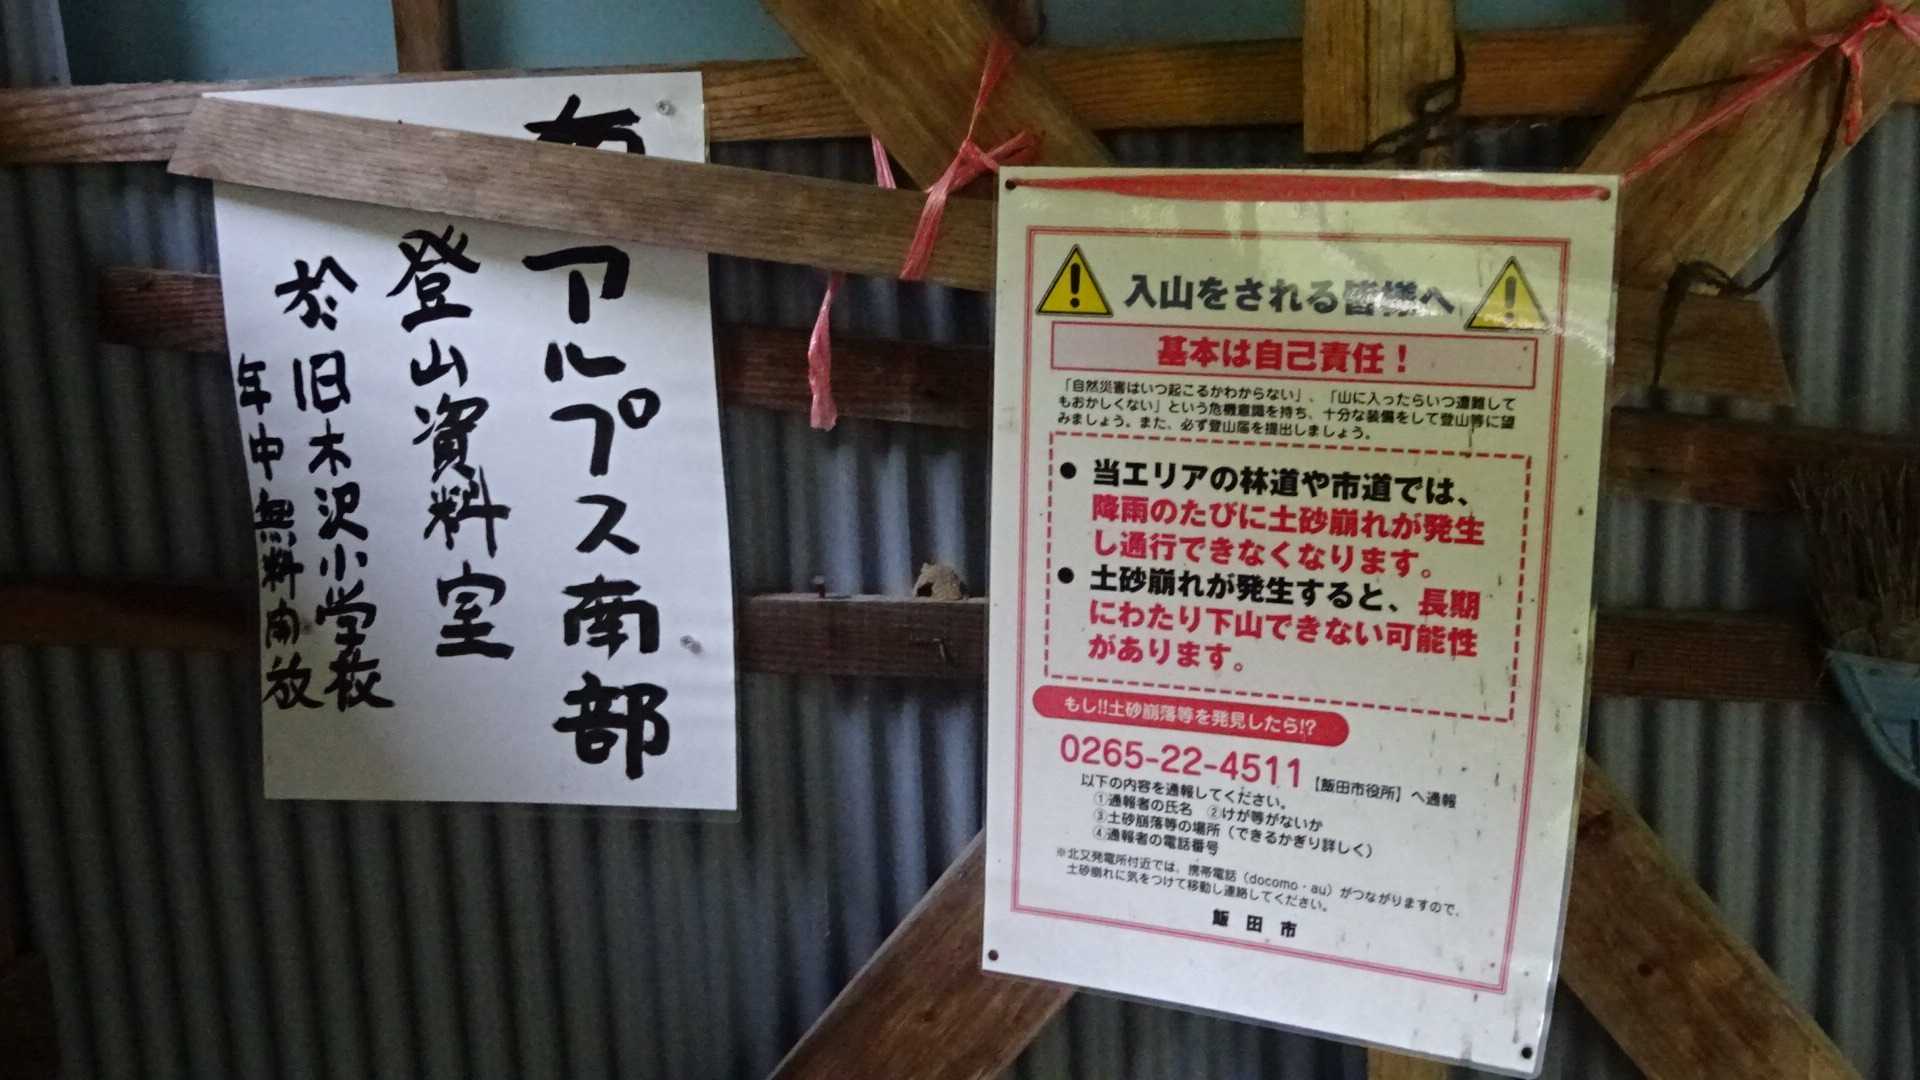 南アルプス南部
登山資料室
於旧木沢小学校
年中無料開放
入山をされる皆様へ
基本は自己責任！
「自然災害はいつ起こるかわからない」、「山に入ったらいつ遭難して
もおかしくない」という危機意識を持ち、十分な装備をして登山等に望
みましょう。また、必ず登山届を提出しましょう。
● 当エリアの林道や市道では、
降雨のたびに土砂崩れが発生
し通行できなくなります。
● 土砂崩れが発生すると、長期
にわたり下山できない可能性
があります。
もし!!土砂崩落等を発見したら!?
0265-22-4511【飯田市役所】へ通報
以下の内容を通報してください。
①通報者の氏名 ②けが等がないか
③土砂崩落等の場所（できるかぎり詳しく）
④通報者の電話番号
※北又発電所付近では、携帯電話（docomo・au）がつながりますので、
土砂崩れに気をつけて移動し連絡してください。
飯田市